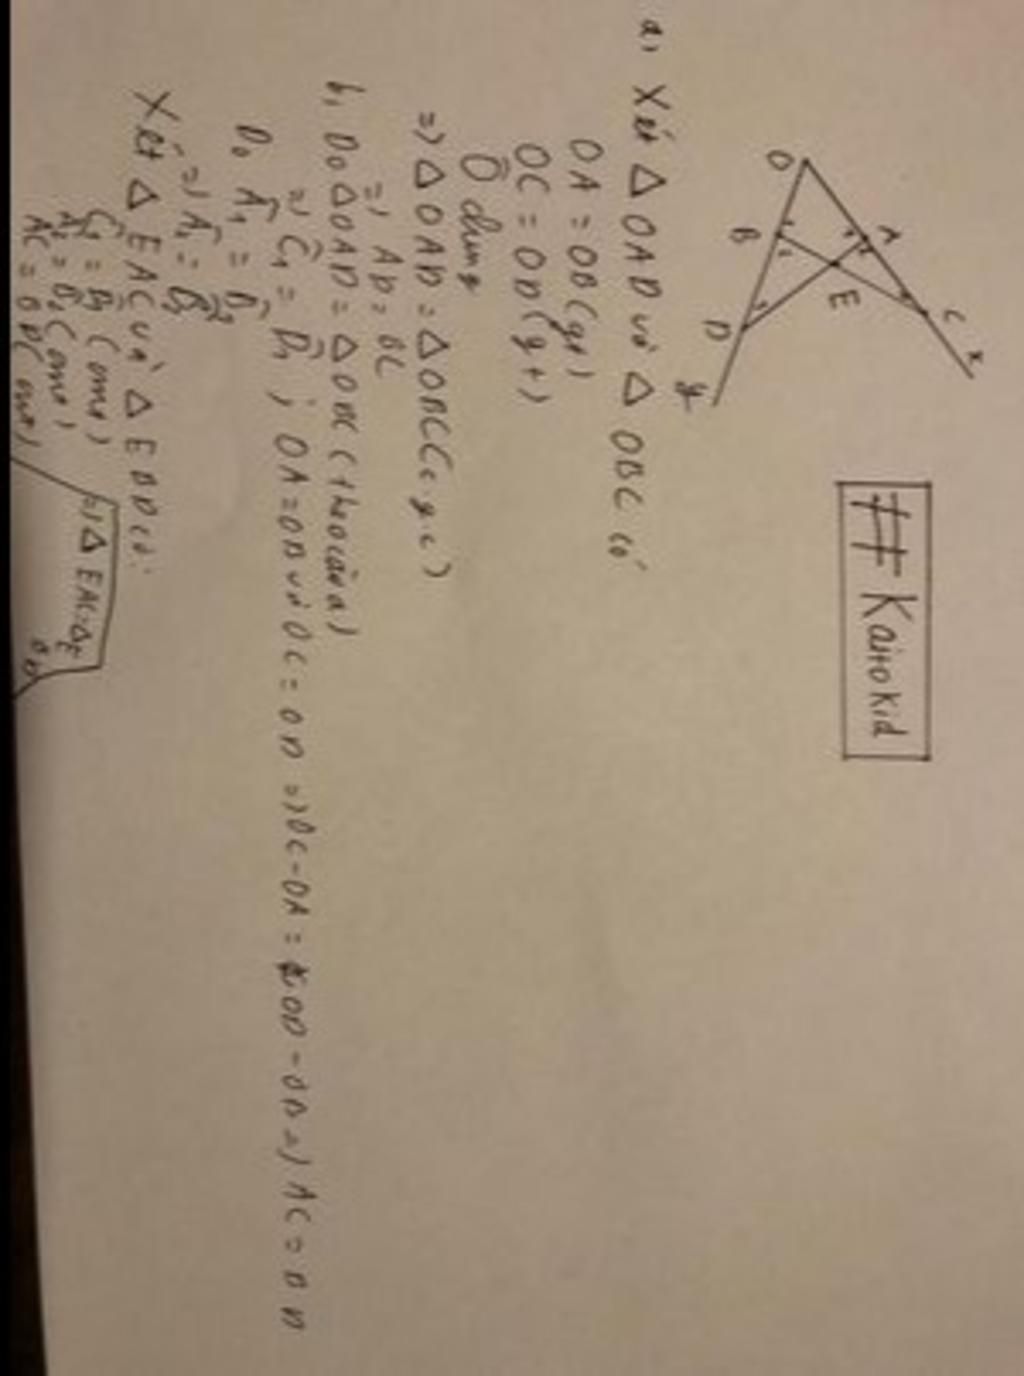 # Kaito kid
O
A
B
E
C
D
x
y
a, Xét Δ OAD và Δ OBC có
OA = OB (gt)
OC = OD (gt)
Ô chung
=) Δ OAD = Δ OBC (c g c)
=) AD = BC
b, Do Δ OAD = Δ OBC (theo câu a)
=) Ĉ1 = D̂1 ; OA = OB và OC = OD =) OC - OA = OD - OB =) AC = BD
Do Â1 = B̂1
=) Â2 = B̂2
Xét Δ EAC và Δ EBD có:
Ĉ1 = D̂1 (cmt)
Â2 = B̂2 (cmt)
AC = BD (cmt)
=) Δ EAC = Δ EBD